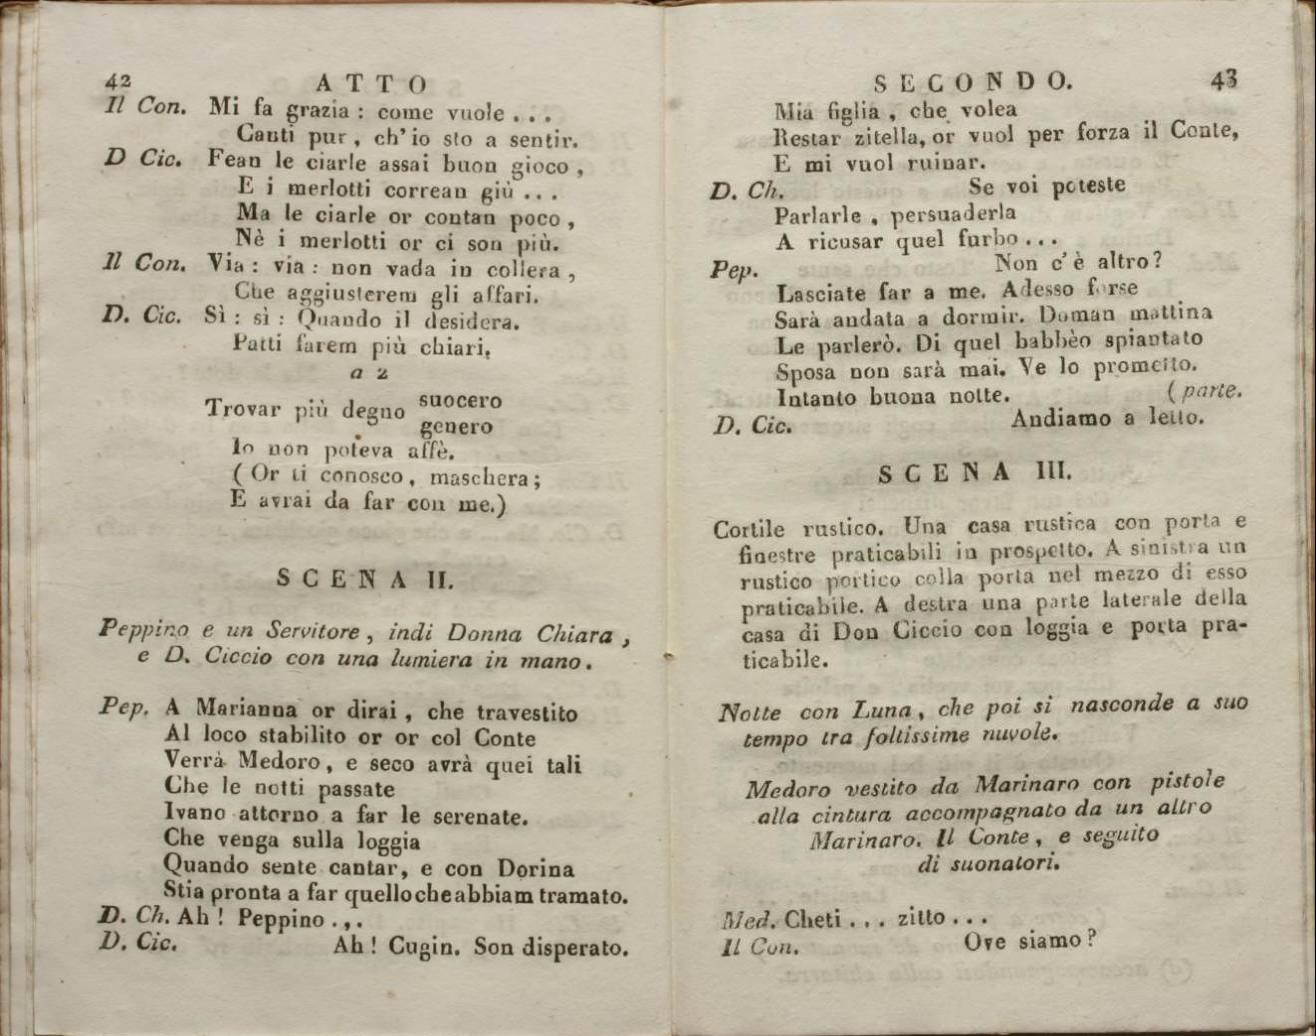 42 ATTO
Il Con. Mi fa grazia : come vuole . . .
Canti pur , ch' io sto a sentir.
D Cic. Fean le ciarle assai buon gioco ,
E i merlotti correan giù . . .
Ma le ciarle or contan poco ,
Nè i merlotti or ci son più.
Il Con. Via : via : non vada in collera ,
Che aggiusterem gli affari.
D. Cic. Sì : sì : Quando il desidera.
Patti farem più chiari.
a 2
Trovar più degno suocero
genero
Io non poteva affè.
( Or ti conosco , maschera ;
E avrai da far con me.)
SCENA II.
Peppino e un Servitore , indi Donna Chiara ,
e D. Ciccio con una lumiera in mano.
Pep. A Marianna or dirai , che travestito
Al loco stabilito or or col Conte
Verrà Medoro , e seco avrà quei tali
Che le notti passate
Ivano attorno a far le serenate.
Che venga sulla loggia
Quando sente cantar, e con Dorina
Stia pronta a far quellocheabbiam tramato.
D. Ch. Ah ! Peppino . , .
D. Cic. Ah ! Cugin. Son disperato.
SECONDO. 43
Mia figlia , che volea
Restar zitella, or vuol per forza il Conte,
E mi vuol ruinar.
D. Ch. Se voi poteste
Parlarle , persuaderla
A ricusar quel furbo . . .
Pep. Non c' è altro ?
Lasciate far a me. Adesso forse
Sarà andata a dormir. Doman mattina
Le parlerò. Di quel babbèo spiantato
Sposa non sarà mai. Ve lo prometto.
Intanto buona notte. ( parte.
D. Cic. Andiamo a letto.
SCENA III.
Cortile rustico. Una casa rustica con porta e
finestre praticabili in prospetto. A sinistra un
rustico portico colla porta nel mezzo di esso
praticabile. A destra una parte laterale della
casa di Don Ciccio con loggia e porta pra-
ticabile.
Notte con Luna , che poi si nasconde a suo
tempo tra foltissime nuvole.
Medoro vestito da Marinaro con pistole
alla cintura accompagnato da un altro
Marinaro. Il Conte , e seguito
di suonatori.
Med. Cheti . . . zitto . . .
Il Con. Ove siamo ?